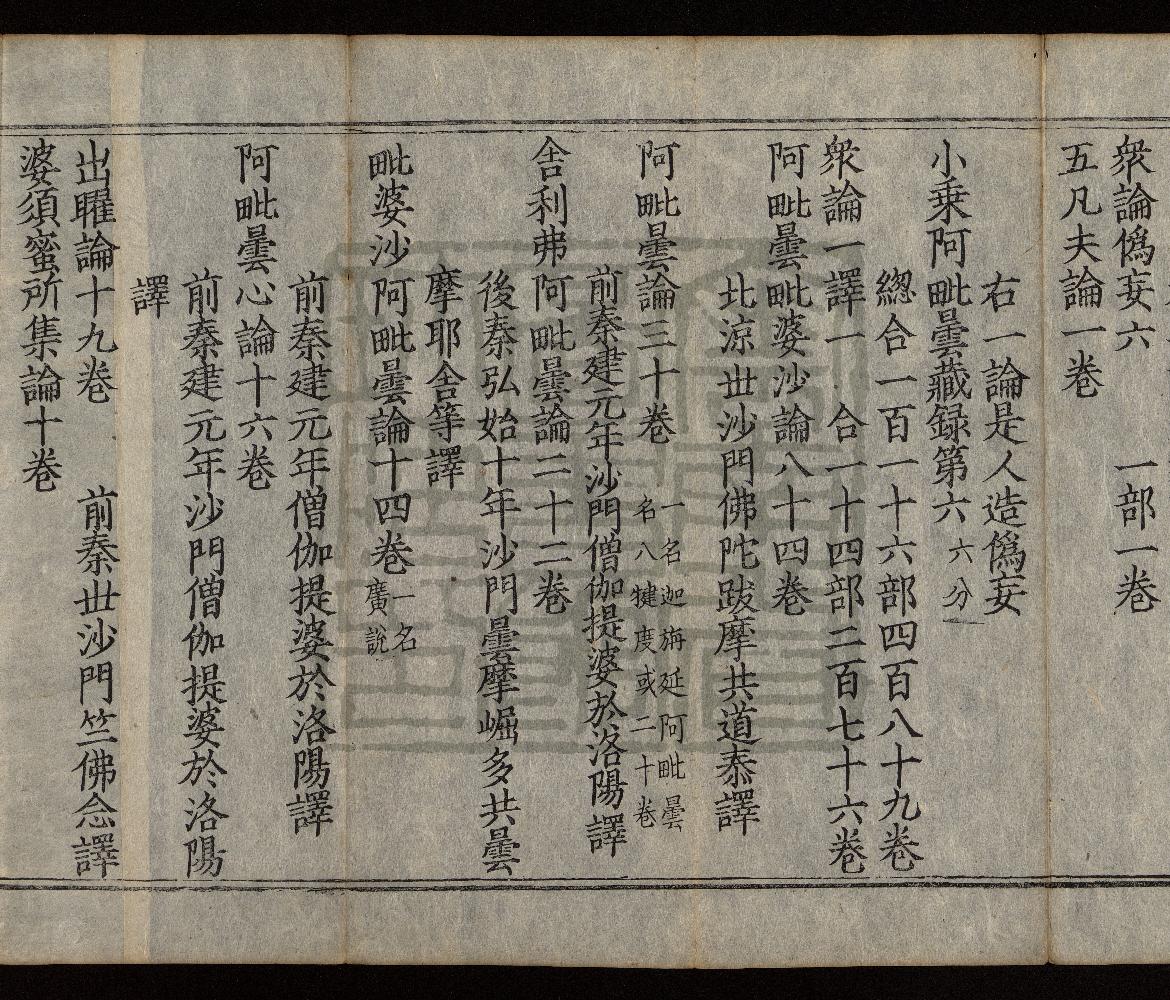 衆論僞妄六　一部一巻
五凡夫論一巻
右一論是人造僞妄
小乗阿毗曇藏録第六 六分
緫合一百一十六部四百八十九巻
衆論一譯一　合一十四部二百七十六巻
阿毗曇毗婆沙論八十四巻
北涼丗沙門佛陀跋摩共道泰譯
阿毗曇論三十巻 一名迦旃延阿毗曇名八犍度或二十巻
前秦建元年沙門僧伽提婆於洛陽譯
舎利弗阿毗曇論二十二巻
後秦弘始十年沙門曇摩崛多共曇
摩耶舎等譯
毗婆沙阿毗曇論十四巻 一名廣説
前秦建元年僧伽提婆於洛陽譯
阿毗曇心論十六巻
前秦建元年沙門僧伽提婆於洛陽
譯
出曜論十九巻　前秦丗沙門竺佛念譯
婆須蜜所集論十巻